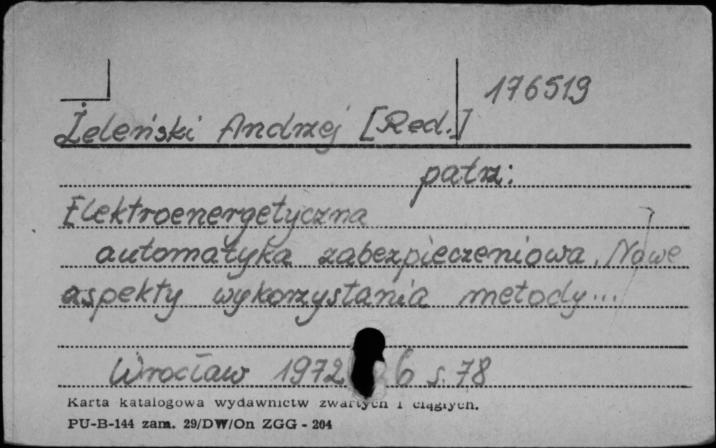 176519
Żeleński Andrzej [Red.]
patrz:
Elektroenergetyczna
automatyka zabezpieczeniowa. Nowe
aspekty wykorzystania metody...
Wrocław 1972 6 s. 78
Karta katalogowa wydawnictw zwartych i ciągłych.
PU-B-144 zam. 29/DW/On ZGG - 204